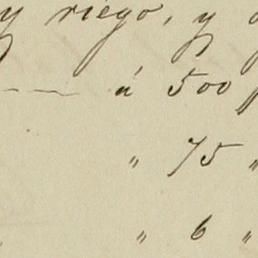 y riego, y
— á 500 p
" 75 "
" " 6 "